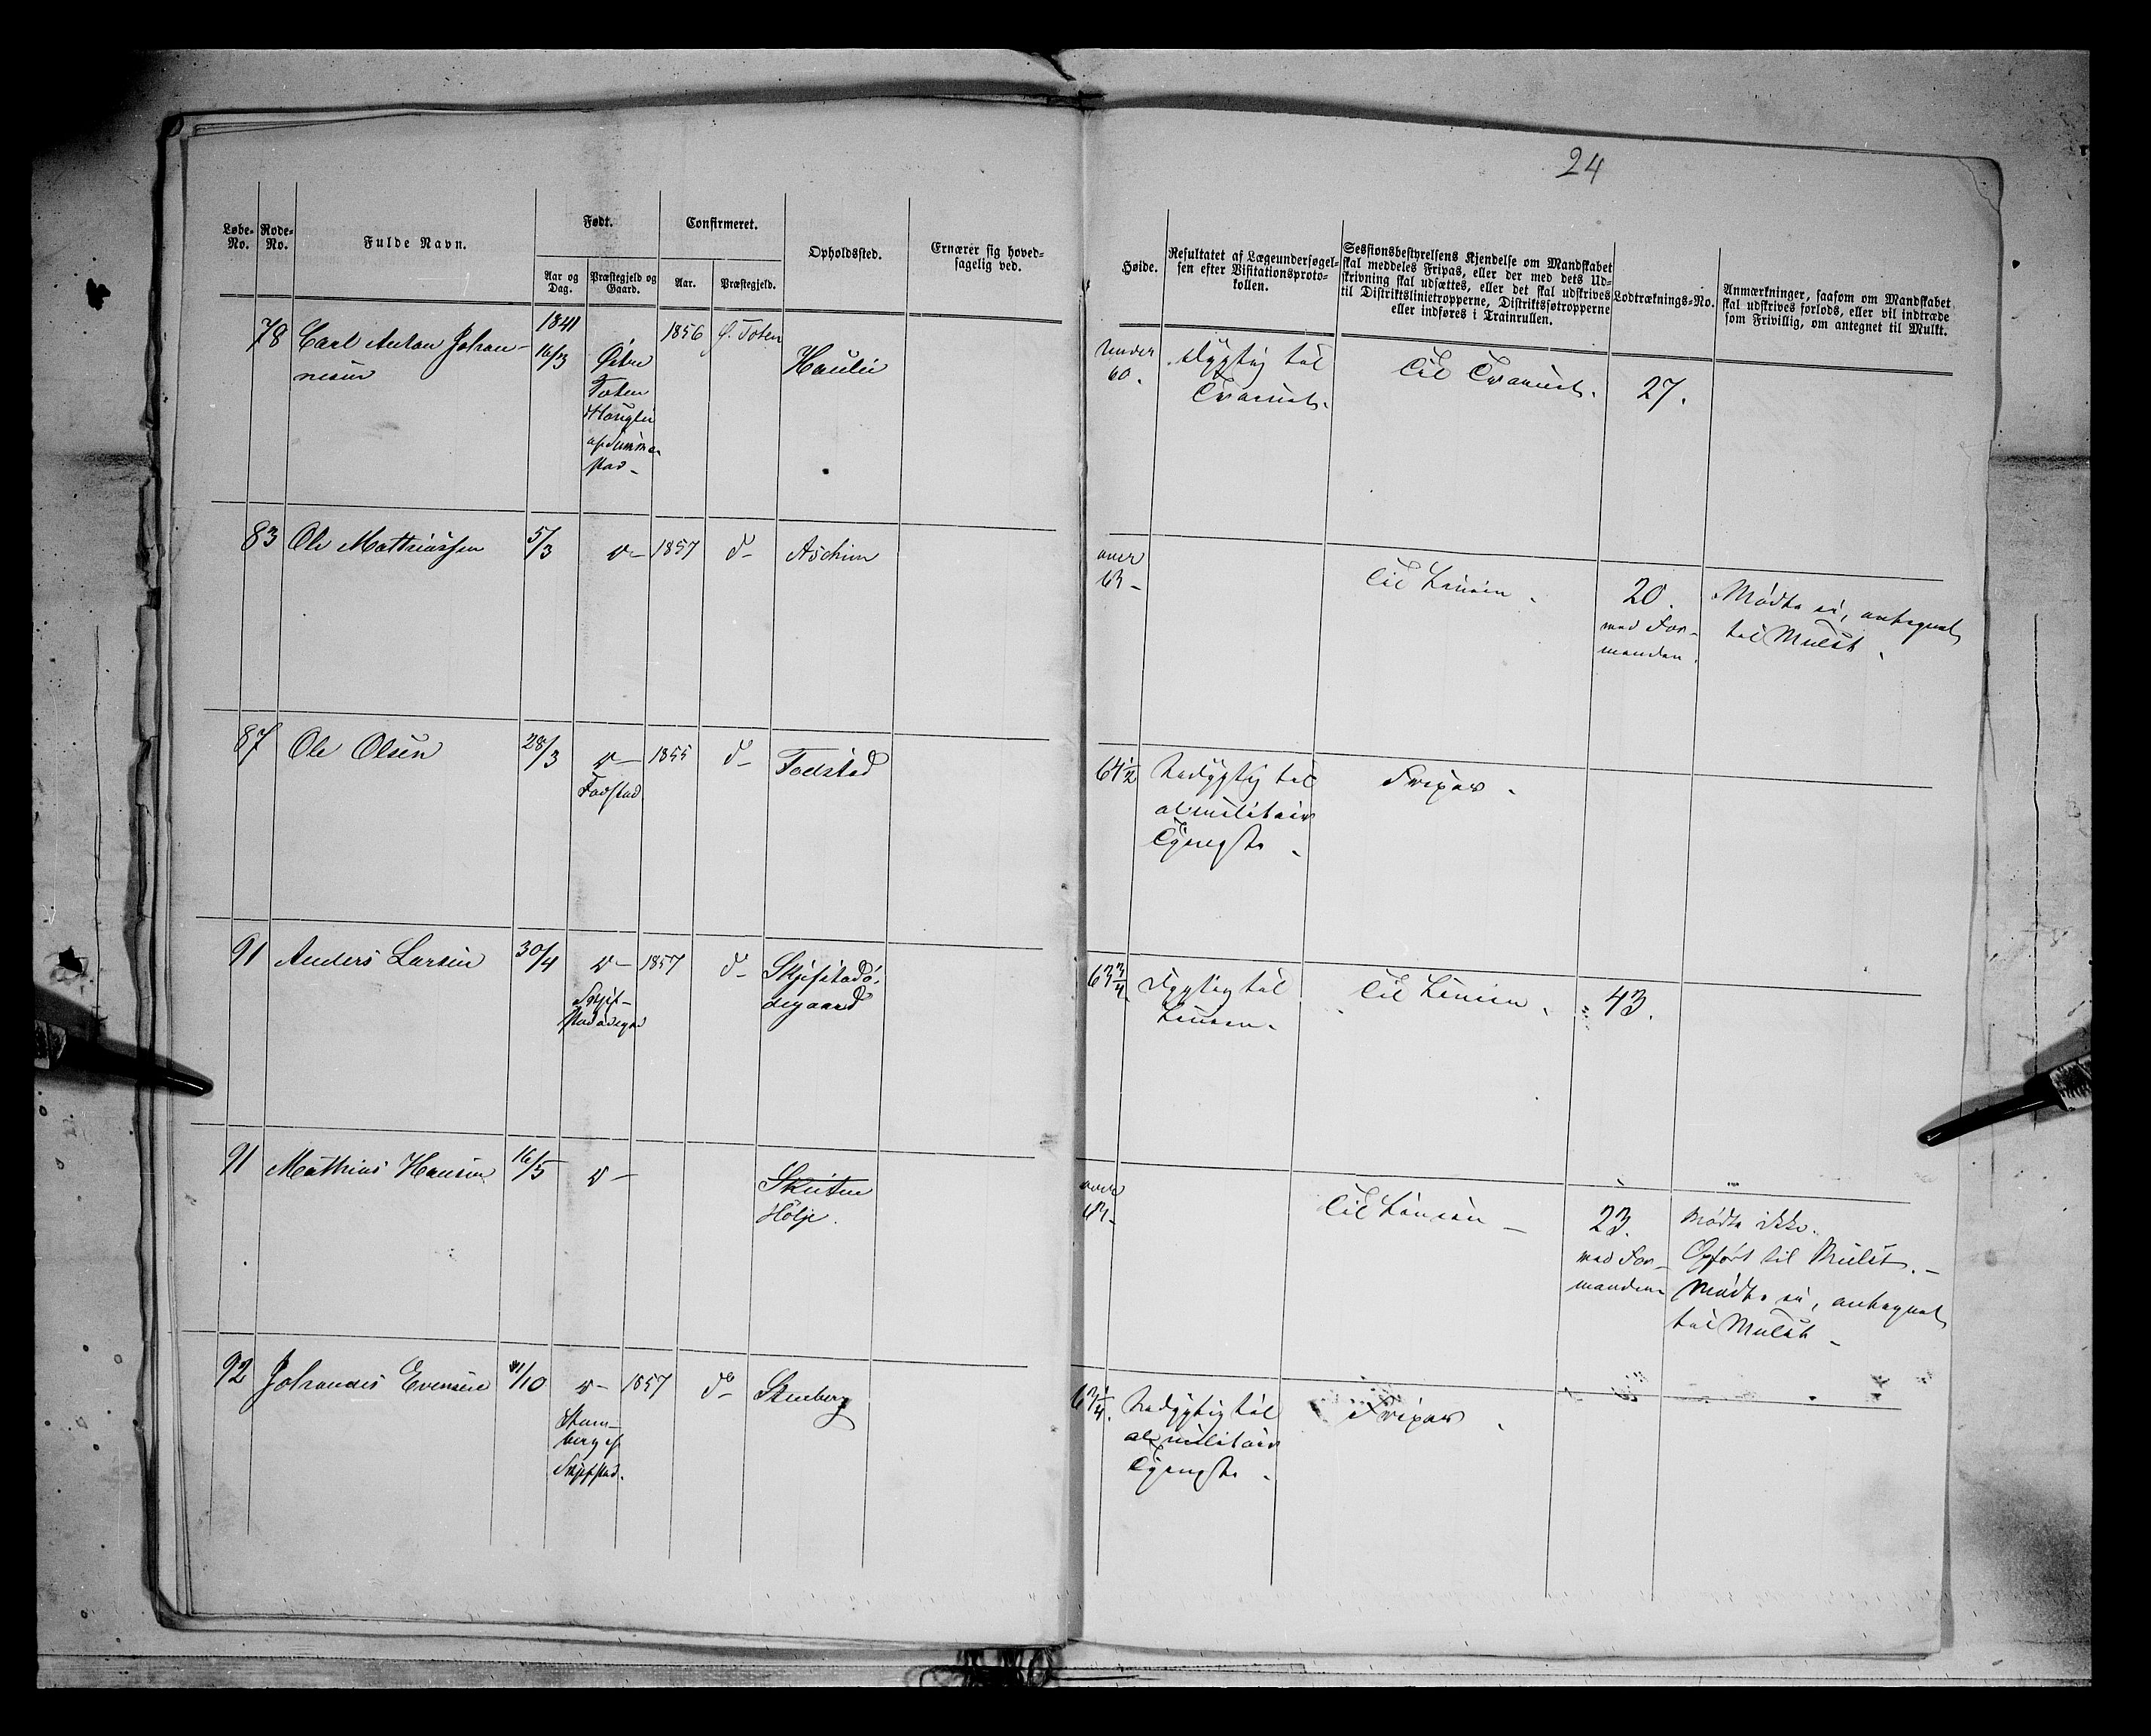 24
Løbe-
No.
Rode-
No.
Fulde Navn.
Født.
Aar og
Dag.
Præstegjeld og
Gaard.
Confirmeret.
Aar.
Præstegjeld.
Opholdssted.
Ernærer sig hoved-
sagelig ved.
Høide.
Resultatet af Lægeundersøgel-
sen efter Visitationsproto-
kollen.
Sessionsbestyrelsens Kjendelse om Mandskabet
skal meddeles Fripas, eller der med dets Ud-
skrivning skal udsættes, eller det skal udskrives
til Distriktslinietropperne, Distriktssøtropperne
eller indføres i Trainrullen.
Lodtræknings-No.
Anmærkninger, saasom om Mandskabet
skal udskrives forlods, eller vil indtræde
som Frivillig, om antegnet til Mulkt.
78
Carl Anton Johan-
nesen
1841
16/3
Østre
Toten
Hauglie
af Summe-
stad
1856
Ø. Toten
Haulie
under
60.
Dygtig til
Trainet.
Til Trainet.
27.
83
Ole Mathiassen
5/3
d-
1857
d-
Aschim
over
63-
Til Linien.
20.
med For-
manden.
Mødte ei, antegnet
til Mulkt.
87
Ole Olsen
28/3
d-
Fodstad
1855
d-
Fodstad
64 1/2
Udygtig til
al militair
Tjeneste.
Fripas.
91
Anders Larsen
30/4
d-
Skjef-
stadødegrd
1857
d-
Skjefstadø-
degaard
63 3/4.
Dygtig til
Linien.
Til Linien.
43.
91
Mathias Hansen
16/5
d-
Skuten
Hølje.
over
63-
Til Linien
23.
med For-
manden
Mødte ikke.
Opført til Mulkt.-
Mødte ei, antegnet
til Mulkt-
92
Johannes Evensen
/10
d-
Sten-
berg af
Skjefstad.
1857
d-
Stenberg
63 1/4.
Udygtig til
al militair
Tjeneste.
Fripas.